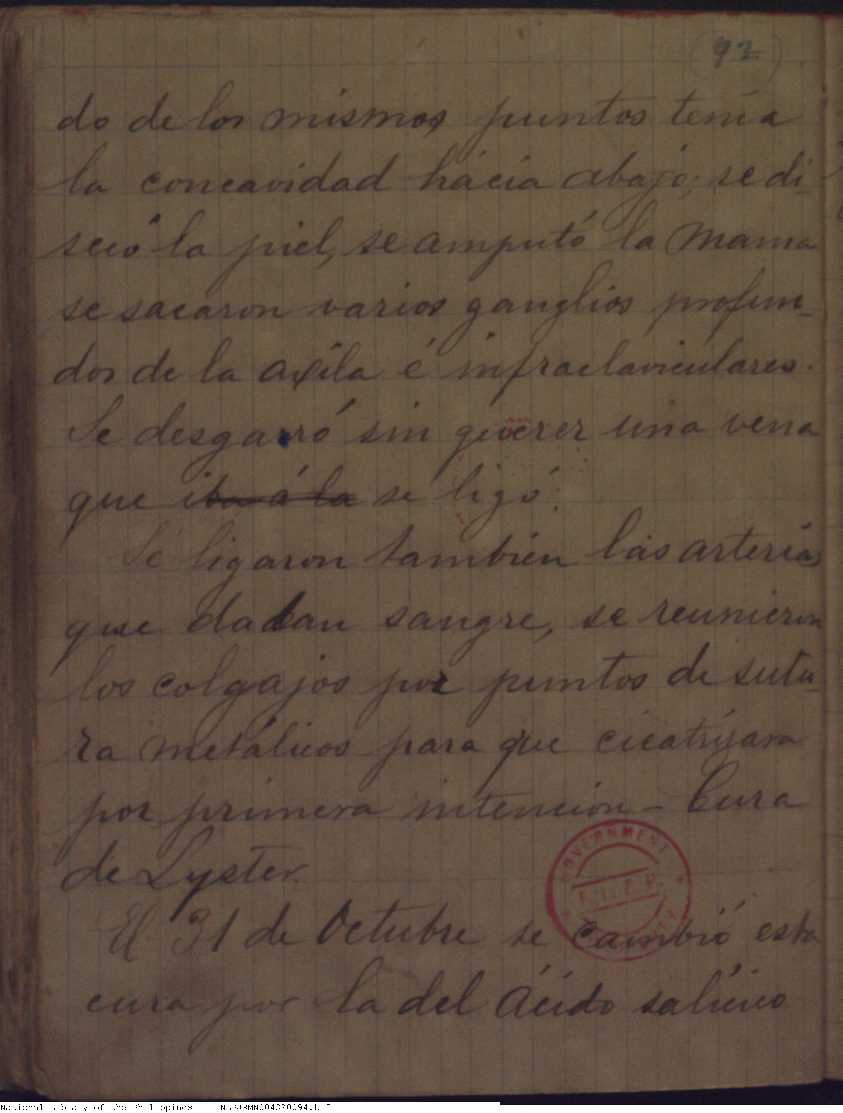 92
do de los mismos puntos tenía
la concavidad hácia abajo; se di-
secó la piel, se amputó la mama
se sacaron varios ganglios profun-
dos de la axila é infraclaviculares.
Se desgarró sin querer una vena
que iba á la se ligó.
Se ligaron también las arterias
que daban sangre, se reunieron
los colgajos por puntos de sutu-
ra metálicos para que cicatrizara
por primera intención - Cura
de Lyster.
El 31 de Octubre se cambió esta
cura por la del Ácido salícico
GOVERNMENT
National Library of the Philippines